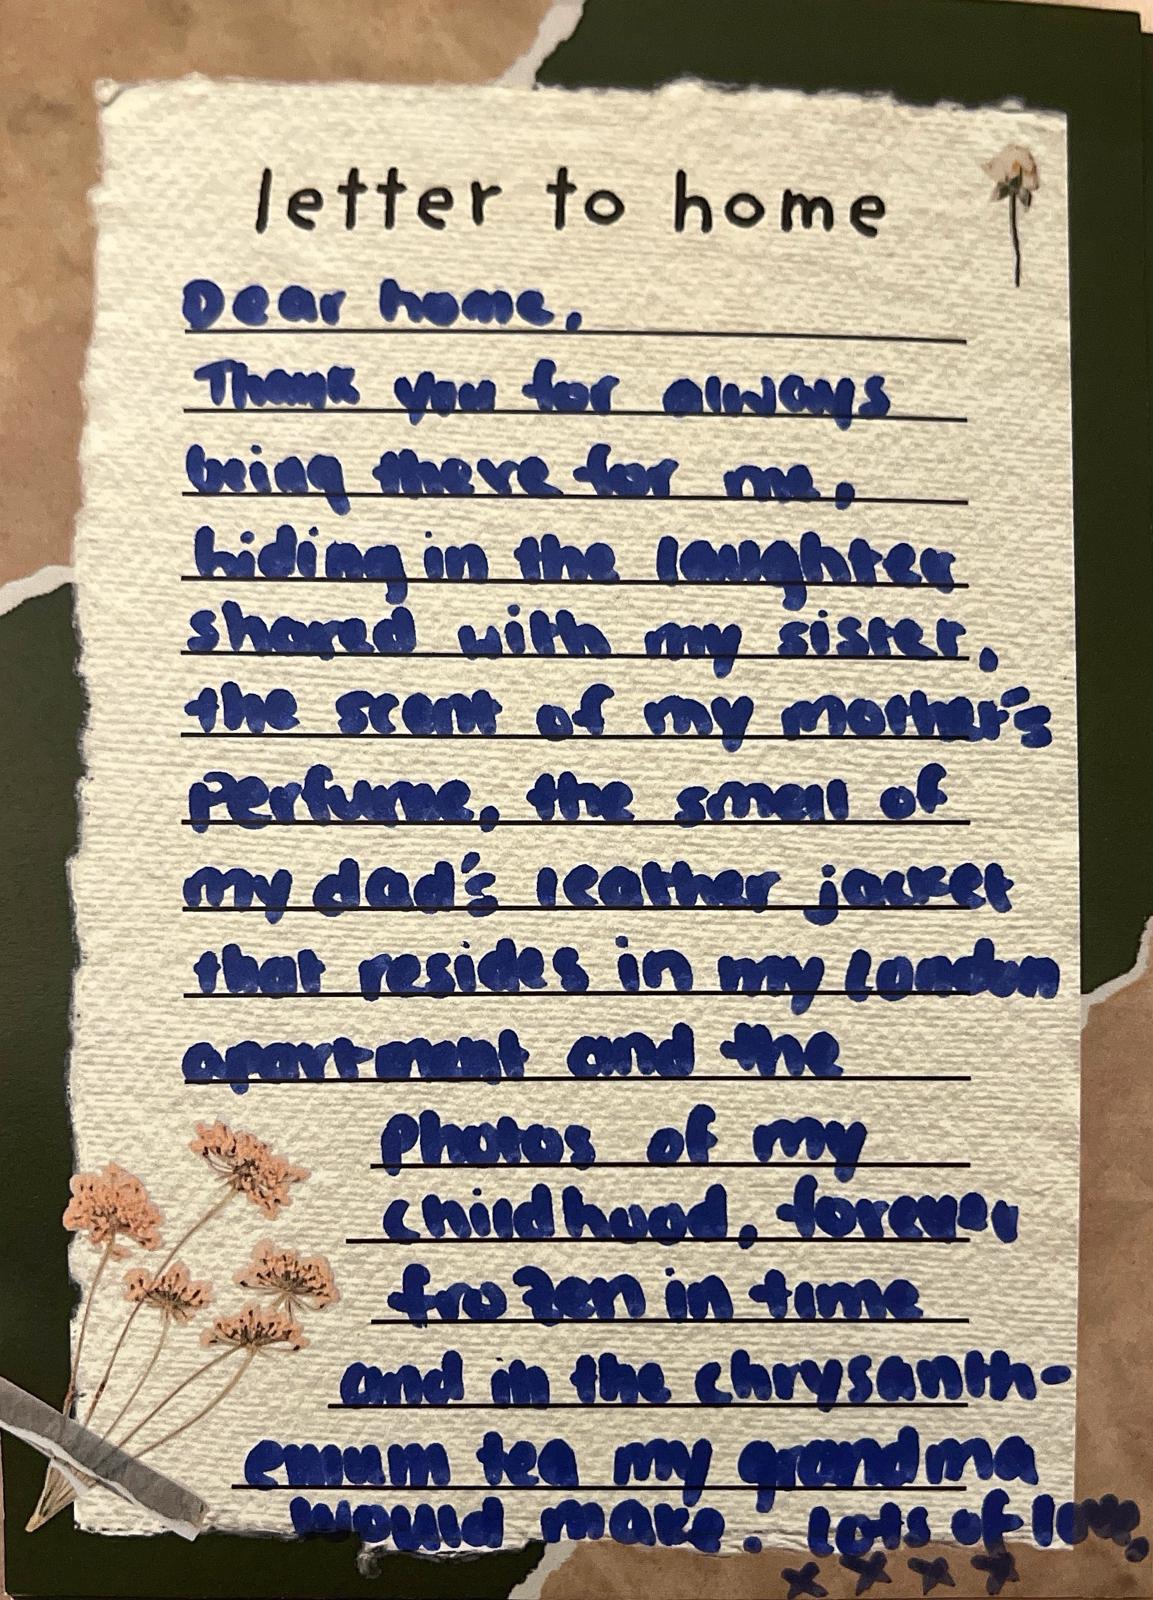 letter to home
Dear home,
Thank you for always
being there for me,
hiding in the laughter
shared with my sister,
the scent of my mother's
perfume, the smell of
my dad's leather jacket
that resides in my London
apartment and the
photos of my
childhood, forever
frozen in time
and in the chrysanth-
emum tea my grandma
would make. Lots of love,
x x x x